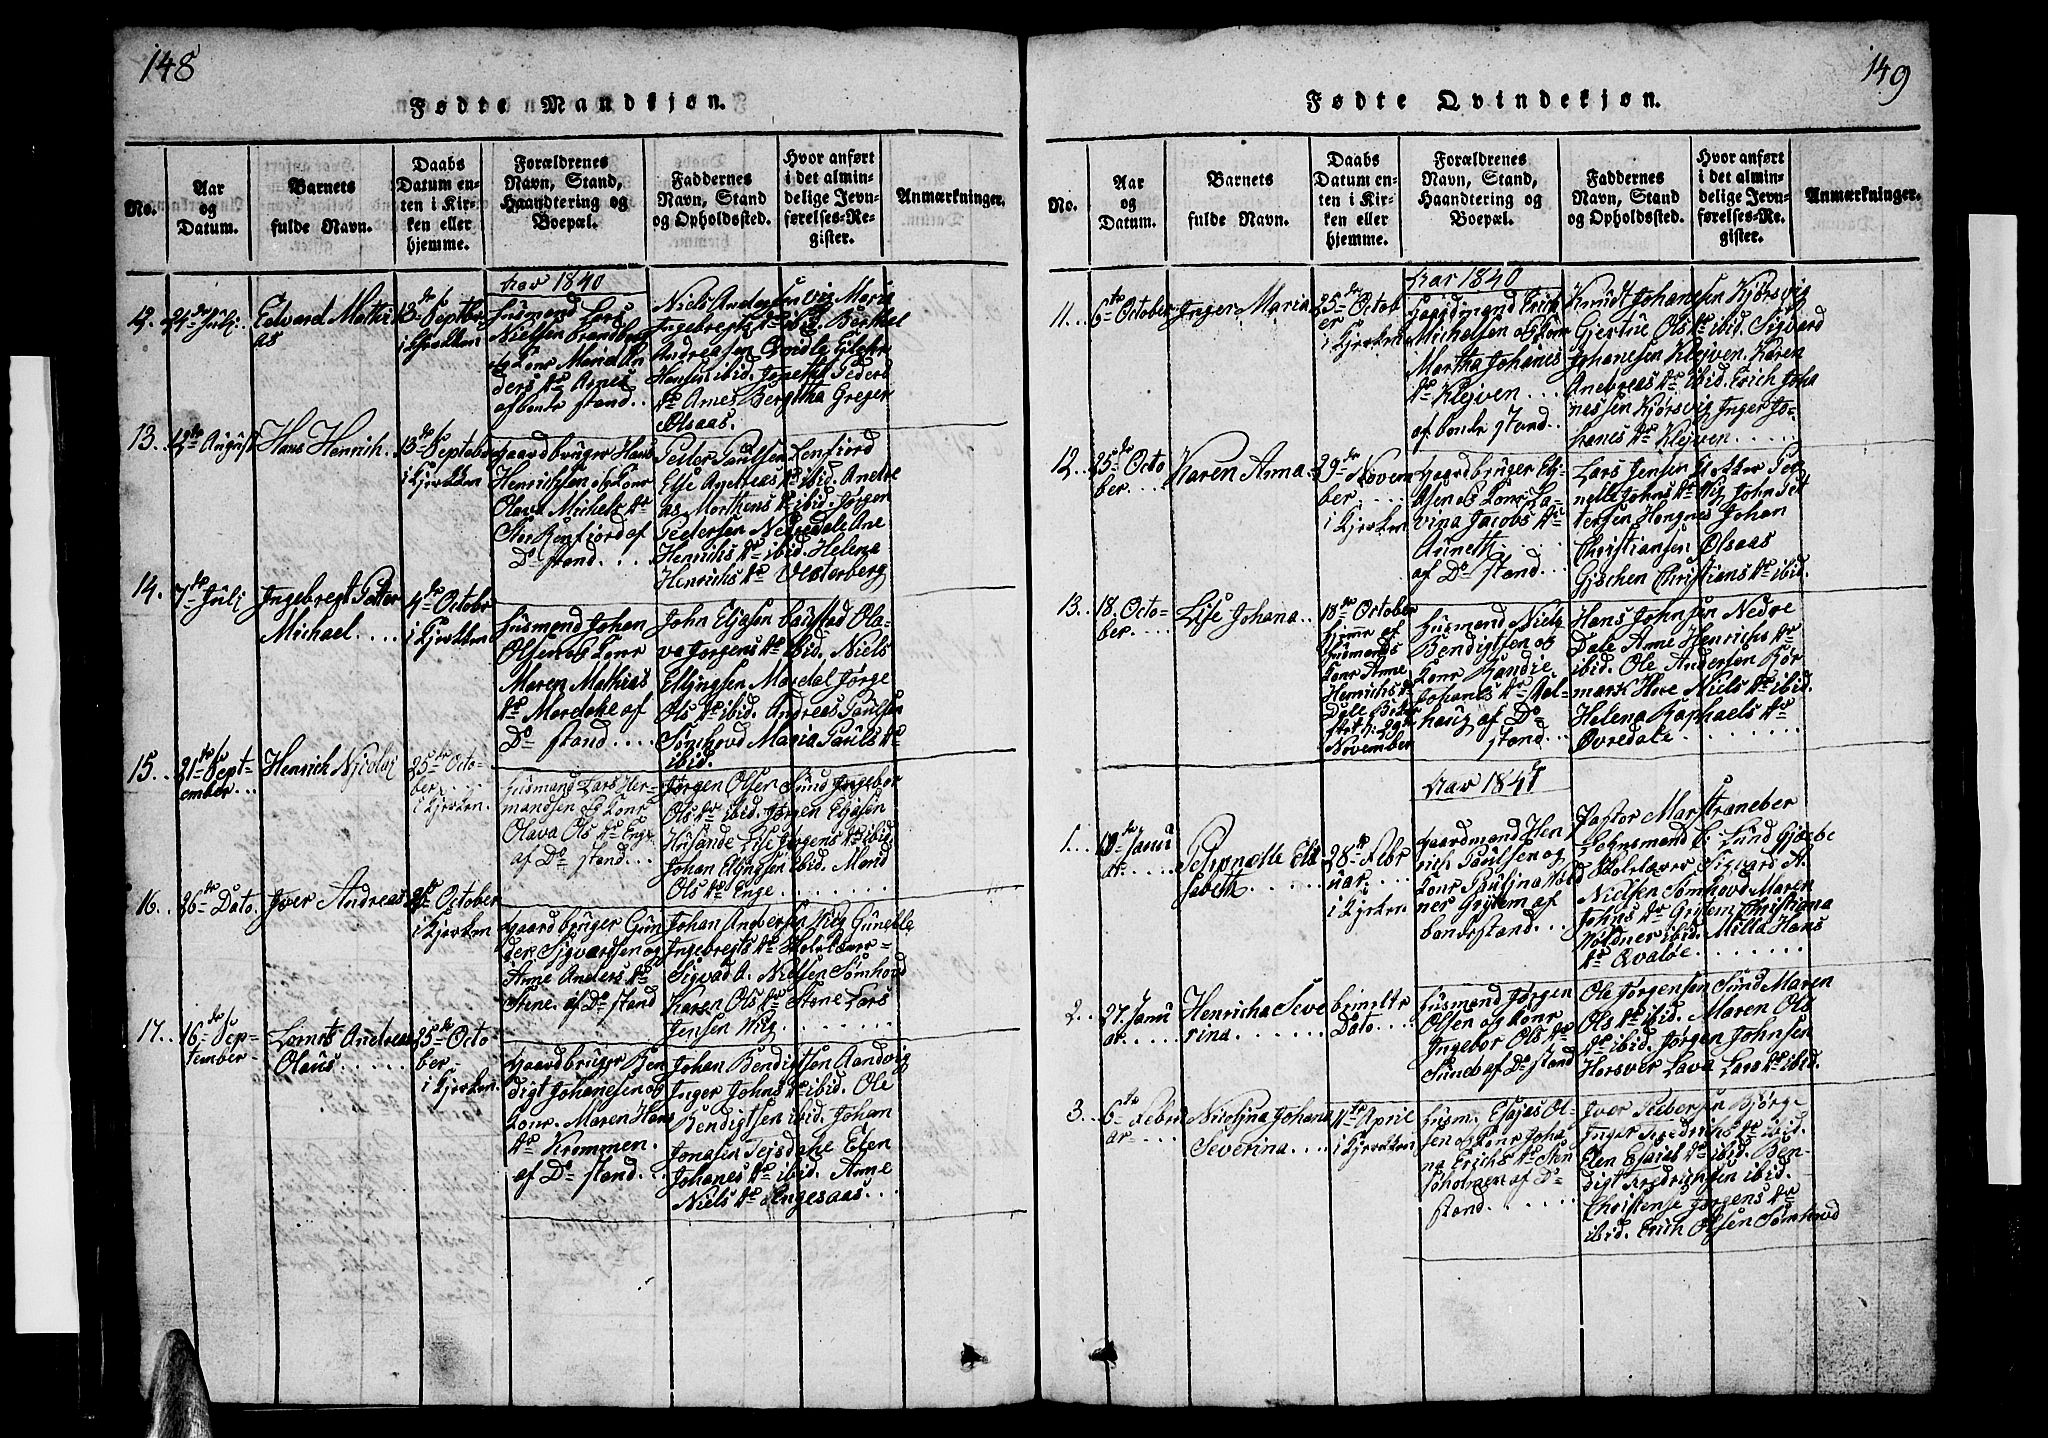 148
Fødte Mandkjøn.
No.
Aar
og
Datum.
Barnets
fulde Navn.
Daabs
Datum en-
ten i Kir-
ken eller
hjemme.
Forældrenes
Navn, Stand,
Haandtering og
Boepæl.
Faddernes
Navn, Stand
og Opholdssted.
Hvor anført
i det almin-
delige Jevn-
førelses-Re-
gister.
Anmærkninger.
Aar 1840
12.
24de Julj.
Edvard Mathi
as
13de Septbr
i Kjerken
Husmand Lars
Nielsen Brandlbg
og Konr Maria An
ders dr Arnes
af bonde stand..
Niels Andersen Vig Maria
Ingebregts dr ibid. Berthel
Andreasen
Hansen ibid. Peders
dr Arnes Bergitha Greger
Olsaas.
13.
12te August
Hans Henrich.
13de September
i Kjerken
Gaardbruger Hans
Henrichsen og Konr
Olava Michels dr
Stor Lenfjord af
Do stand....
Petter Paulsen Lenfjord
Else Andreas dr ibid. Andre
as Morthens dr ibid. Jørgen
Pedersen Nedredale Ane
Henrichs dr ibid. Helena
Henrichs dr Vesterberg
14.
7de Julj
Ingebregt Petter
Michael....
4de Octobr
i Kjerken
Husmand Johan
Olsen og Konr
Maren Mathias
dr Mardale af
Do stand....
John Eljasen Baustad Ola-
va Jørgens dr ibid. Niels
Ellingsen Mardal Jørge
Ols dr ibid. Andreas Paulsen
Sømhovd Maria Pauls dr
ibid.
15.
21de Sept-
ember...
Henrich Nicolai
25de Octo-
ber....
i Kjerken.
Husmand Lars Her-
mandsen og Konr
Olava Ols dr Enge
af Do stand...
Jørgen Olsen Sund Ingebor
Ols dr ibid. Jørgen Eljasen
Husande Lise Jørgens dr ibid
Johan Ellingsen ibid. Marid
Ols dr Enge........
16.
26de Dato.
Iver Andreas
October
i Kjerken
Gaardbruger Gun
der Sigvardsen og
Anne Anders dr
Stene. af Do stand
Johan Andersen Vig Gunelle
Ingebregts dr Skolelærer-
Sigvad A. Nielsen Sømhovd
Karen Ols dr Stene Lars
Jensen Vig.......
17.
16de Sep-
tember-
Lornts Andreas
Olaus.....
25de Octo-
ber
i Kjerken.
Gaardbruger Ben
digt Johanesen og
Konr. Maren Hans
dr Krommen.
af Do stand...
Johan Bendigtsen Aandvig
Inger Johns dr ibid. Ole
Bendigtsen ibid. Johan
Jonasen Tejsdahl Elen
Johanes dr ibid. Anne
Niels dr Engesaas...
149
Fødte Qvindekjøn.
No.
Aar
og
Datum.
Barnets
fulde Navn.
Daabs
Datum en-
ten i Kir-
ken eller
hjemme.
Forældrenes
Navn, Stand,
Haandtering og
Boepæl.
Faddernes
Navn, Stand
og Opholdssted.
Hvor anført
i det almin-
delige Jevn-
førelses-Re-
gister.
Anmærkninger.
Aar 1840
11..
6te October
Inger Maria
25de Octob
er
i Kjerken
Gaardmand Erich
Michelsen og Konr
Martha Johanes
dr Klejven....
af bonde stand..
Knudt Johansen Kjørsvig
Gjertrue Ols dr ibid. Sigvard
Johanesen Klejven. Karen
Andreas dr ibid. Erich Joha
nessen Kjørsvig Inger Jo-
hanes dr Klejven......
12.
25de Octo
ber....
Karen Anna
29de Novem
ber....
i Kjerken
Gaardbruger Elj-
Konr La-
vina Jacobs dr
Auneth....
af Do stand...
Lars Jensen Per
nelle Johns dr Vig John Pet
tersen Hognes Johan
Christiansen Olsaas
Gjechen Christians dr ibid.
13..
18. Octo-
ber....
Lise Johana..
18de October
hjeme af
Husmands
Konr Anne
Henrichs dr
Dale
29de
November
Husmand Niels
Bendigtsen og
Konr
Johanes dr Hal-
haug af Do
stand..
Hans Johnsen Nedre
Dale Anne Henrichs dr
ibid. Ole Andersen Kjør
mark Niels dr ibid.
Helena Raphaels dr
Øvredale........
Aar 1841
1...
10de Janu
ar....
Petternelle Eli
sabeth......
28de Febr
uar....
i Kjerken
Gaardmand Hen
rich Paulsen og
Konr Paulina Vold
ner Grytem af
bondestand..
Pastor Marstrander
Lehnsmand C. Lund Gjæbe
Skolelærer Sigvard A.
Nielsen Sømhovd Maren
Johns dr Grytem Christiana
Voldner ibid. Milla Hans
dr Qvaløe.......
2..
27. Janu
ar....
Henricha Seve
rina.......
bemeldte
Dato....
Husmand Jørgen
Olsen og Konr
Ingebor Ols dr
Sund af Do stand
Ole Jørgensen Sund Maren
Ols dr ibid. Maren Ols
dr ibid. Jørgen Johnsen
Horsver Lava Lars dr ibid.
3..
6te Febru
ar....
Nicolina Johana
Severina....
11te April
i Kjerken
Husm. Esajas Ol-
sen og Konr Joha
na Erichs dr Sten
søholmen af Do
stand......
Iver Pedersen Bjørge
Inger Fredrichs dr ibid.
Elen Esaies dr ibid. Ben-
digt Fredrichsen ibid.
Christense Jørgens dr
ibid. Erich Olsen Sømhovd